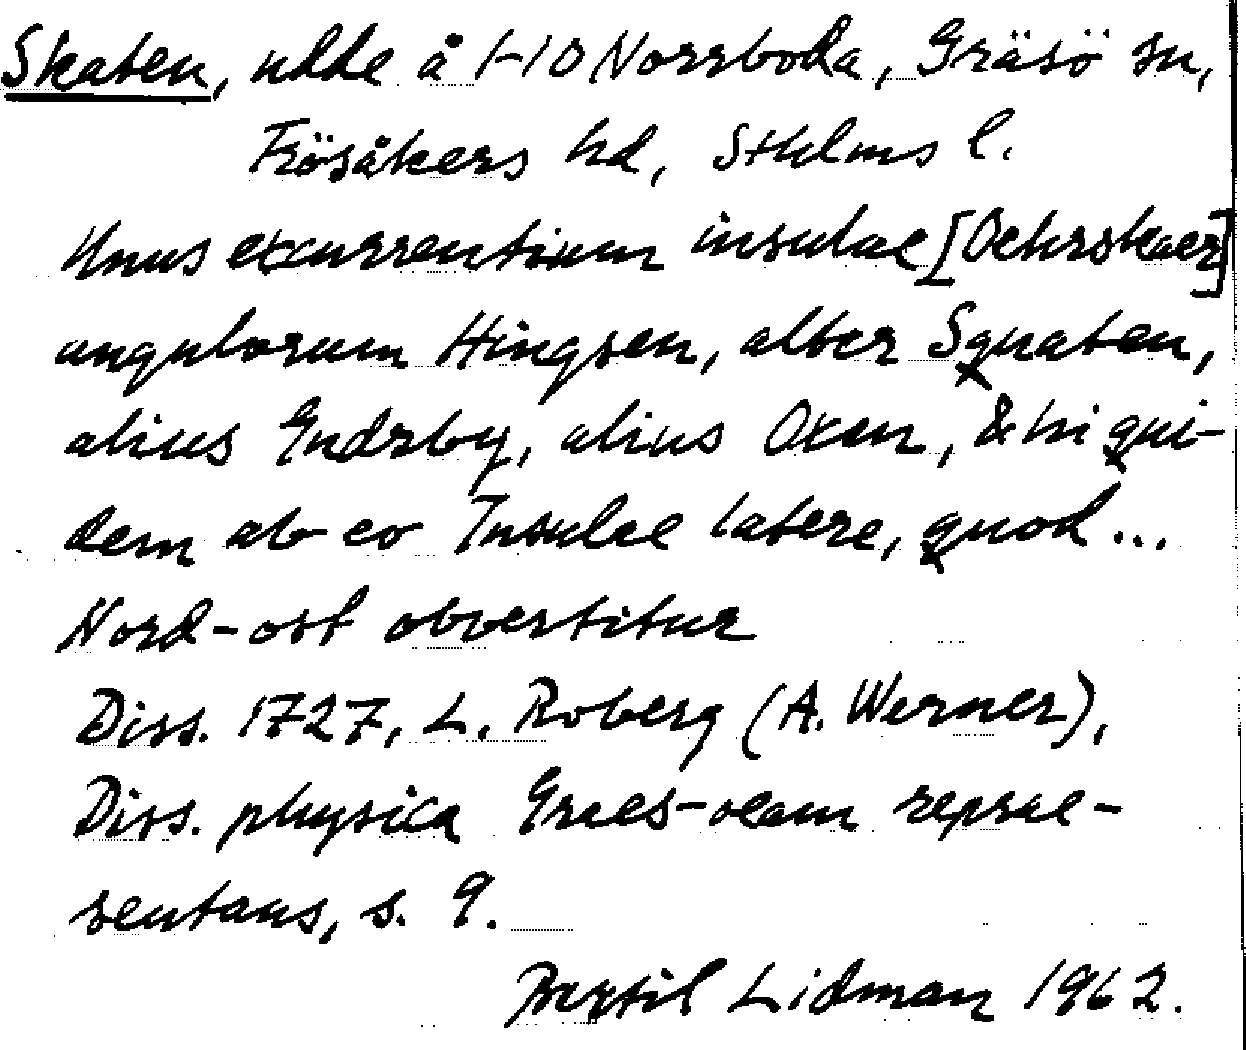 Skaten, udde å 1-10 Norrboda, Gräsö sn,
Frösåkers hd, Sthlms l.
Unus excurrentium insulae [Oehrskaer]
angulorum Hingsen, alter Squaten,
alius Endrby, alius Oxen, & hi qui-
dem ab eo Insulae latere, quod ...
Nord-ost obvertitur
Diss. 1727, L. Roberg (A. Werner),
Diss. physica Graes-oeam reprae-
sentans, s. 9.
Bertil Lidman 1962.